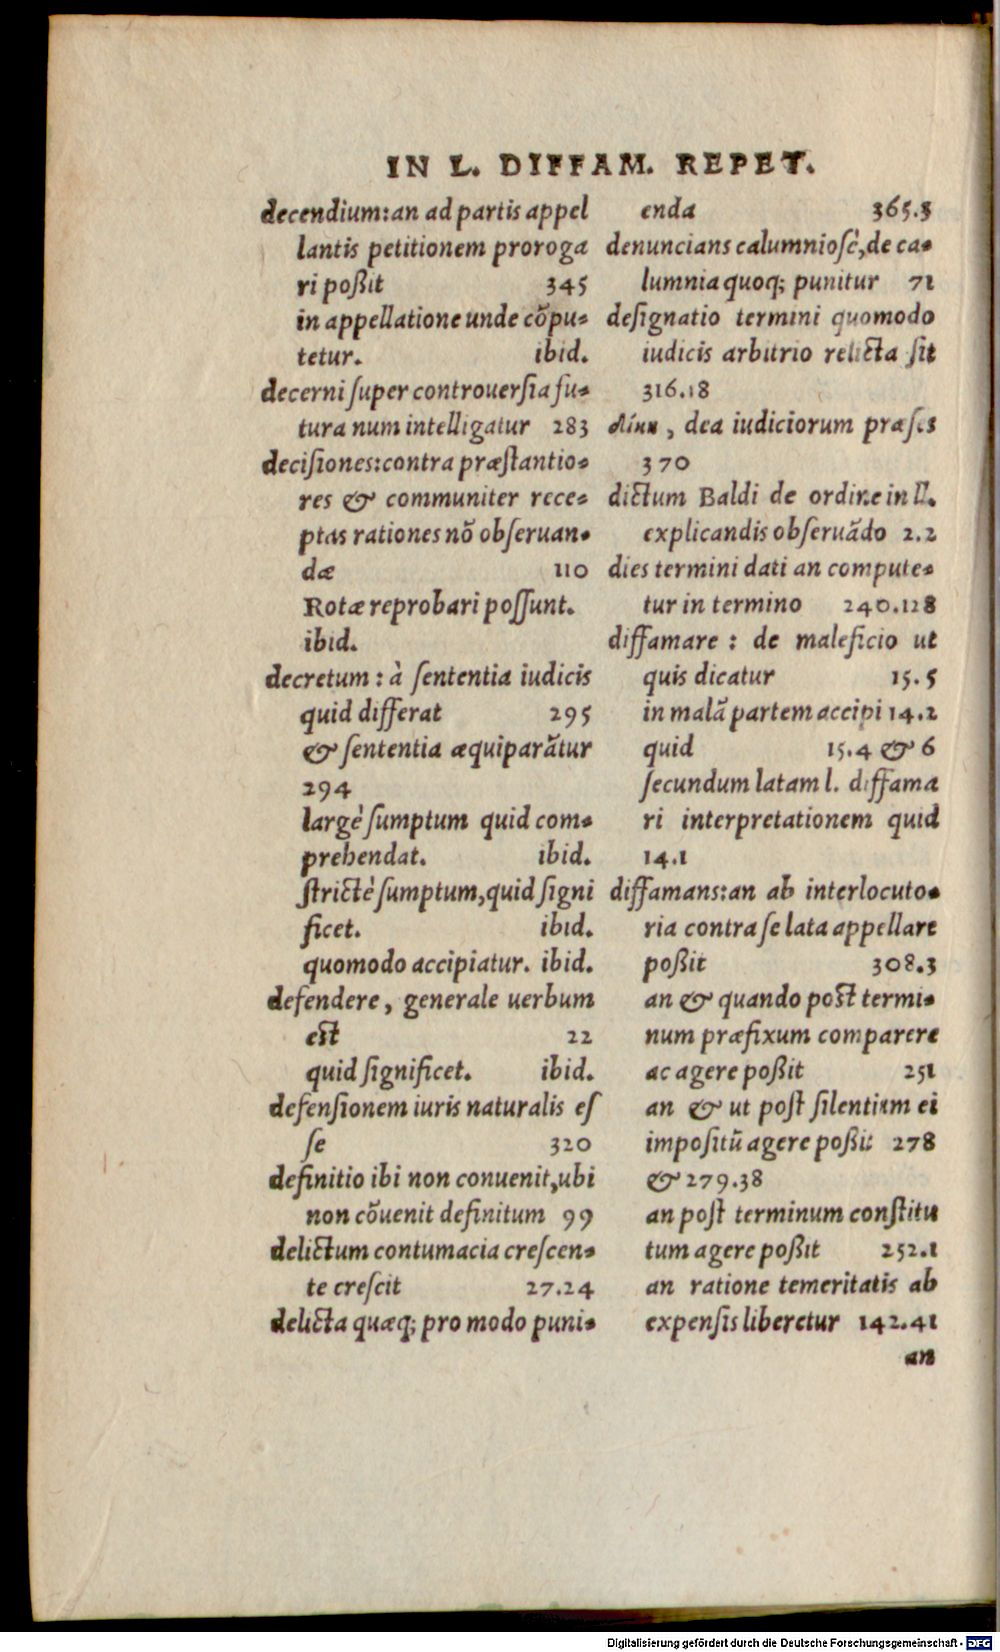 IN L. DIFFAM. REPET.
decendium: an ad partis appel
lantis petitionem proroga
ri poßit 345
in appellatione unde cõpu-
tetur. ibid.
decerni ſuper controuerſia fu-
tura num intelligatur 283
deciſiones: contra præſtantio-
res & communiter rece-
ptas rationes nõ obſeruan-
dæ 110
Rotæ reprobari poſſunt.
ibid.
decretum: à ſententia iudicis
quid differat 295
& ſententia æquiparãtur
294
largè ſumptum quid com-
prehendat. ibid.
ſtrictè ſumptum, quid ſigni
ficet. ibid.
quomodo accipiatur. ibid.
defendere, generale uerbum
est 22
quid ſignificet. ibid.
defenſionem iuris naturalis eſ
ſe 320
definitio ibi non conuenit, ubi
non cõuenit definitum 99
delictum contumacia creſcen-
te creſcit 27.24
delicta quæq; pro modo puni-
enda 365.3
denuncians calumnioſè, de ca-
lumnia quoq; punitur 71
deſignatio termini quomodo
iudicis arbitrio relicta ſit
316.18
δίκη, dea iudiciorum præſes
370
dictum Baldi de ordine in ll.
explicandis obſeruãdo 2.2
dies termini dati an compute-
tur in termino 240.128
diffamare: de maleficio ut
quis dicatur 15.5
in malã partem accipi 14.2
quid 15.4 & 6
ſecundum latam l. diffama
ri interpretationem quid
14.1
diffamans: an ab interlocuto-
ria contra ſe lata appellare
poßit 308.3
an & quando post termi-
num præfixum comparere
ac agere poßit 251
an & ut poſt ſilentium ei
impoſitũ agere poßit 278
& 279.38
an poſt terminum conſtitu
tum agere poßit 252.1
an ratione temeritatis ab
expenſis liberetur 142.41
an
Digitalisierung gefördert durch die Deutsche Forschungsgemeinschaft - DFG